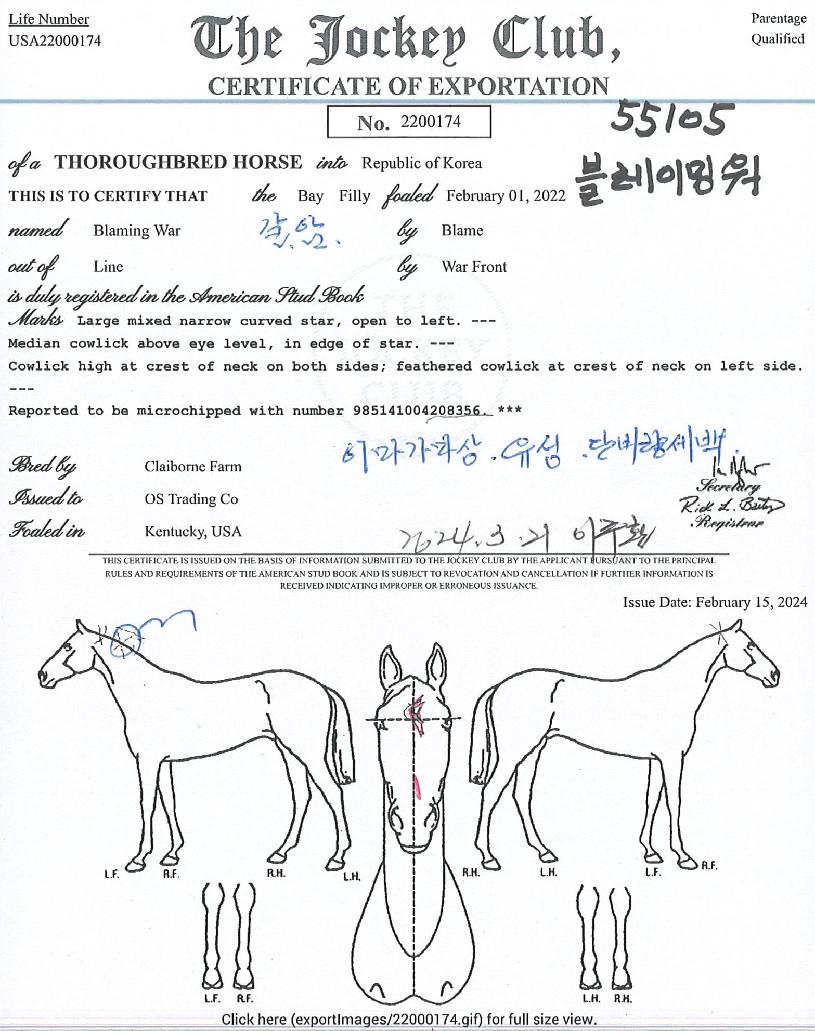 Life Number
USA22000174
The Jockey Club,
Parentage
Qualified
CERTIFICATE OF EXPORTATION
No. 2200174
55105
of a THOROUGHBRED HORSE into Republic of Korea
블레이밍워
THIS IS TO CERTIFY THAT the Bay Filly foaled February 01, 2022
named Blaming War 갈, 암. by Blame
out of Line by War Front
is duly registered in the American Stud Book
Marks Large mixed narrow curved star, open to left. ---
Median cowlick above eye level, in edge of star. ---
Cowlick high at crest of neck on both sides; feathered cowlick at crest of neck on left side.
---
Reported to be microchipped with number 985141004208356. ***
이마가마상. 유성.
Bred by Claiborne Farm
Secretary
Issued to OS Trading Co
Registrar
Foaled in Kentucky, USA
2024.3.21 이주환
THIS CERTIFICATE IS ISSUED ON THE BASIS OF INFORMATION SUBMITTED TO THE JOCKEY CLUB BY THE APPLICANT PURSUANT TO THE PRINCIPAL
RULES AND REQUIREMENTS OF THE AMERICAN STUD BOOK AND IS SUBJECT TO REVOCATION AND CANCELLATION IF FURTHER INFORMATION IS
RECEIVED INDICATING IMPROPER OR ERRONEOUS ISSUANCE.
Issue Date: February 15, 2024
L.F. R.F. R.H. L.H. R.H. L.H. L.F. R.F.
L.F. R.F. L.H. R.H.
Click here (exportImages/22000174.gif) for full size view.